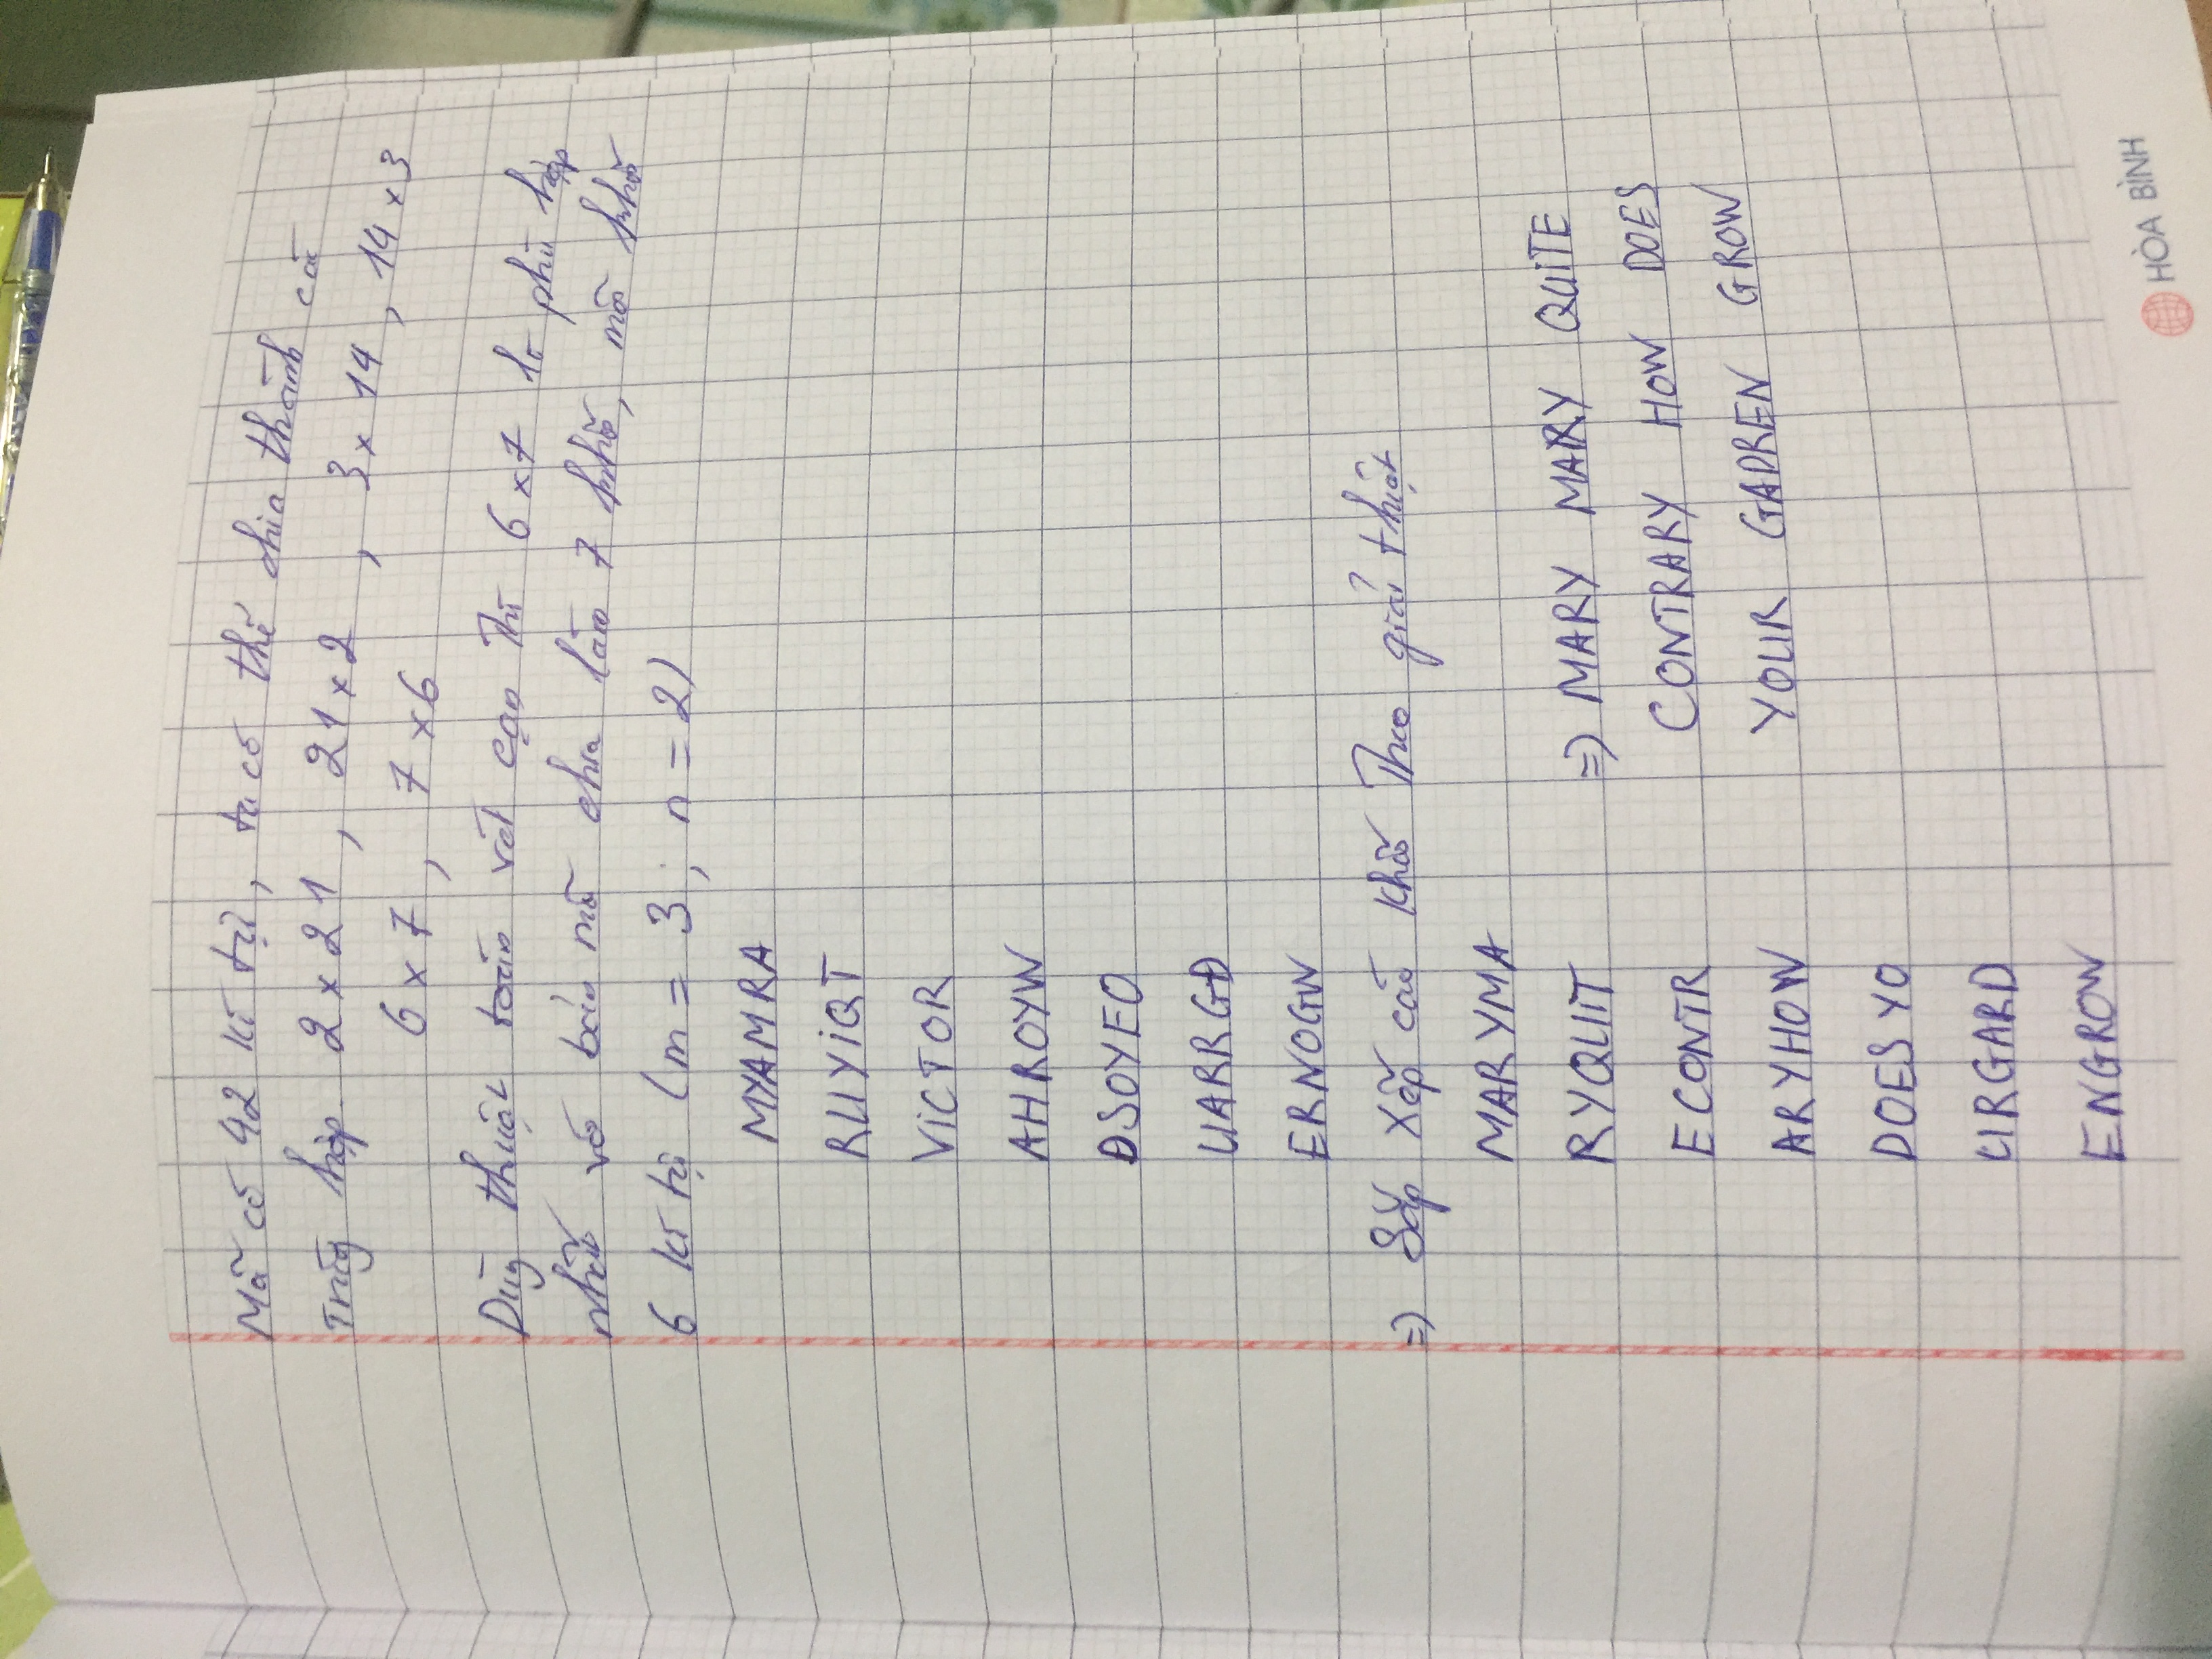 Mã có 42 kí tự, ta có thể chia thành các
trưg hợp 2 x 21, 21 x 2, 3 x 14, 14 x 3
6 x 7, 7 x 6
Dùg thuật toán vét cạn thì 6 x 7 là phù hợp
nhất vó bản mã chia làm 7 khối, mỗi khối
6 kí tự (m = 3; n = 2)
MYAMRA
RUYiQT
ViCTOR
AHROYW
ĐSOYEO
UARRGĐ
ERNOGW
=) Sắp xếp các khối theo giải thuật
MARYMA
RYQUIT
ECONTR
ARYHOW
DOESYO
URGARD
ENGROW
=) MARY MARY QUITE
CONTRARY HOW DOES
YOUR GADREN GROW
HÒA BÌNH